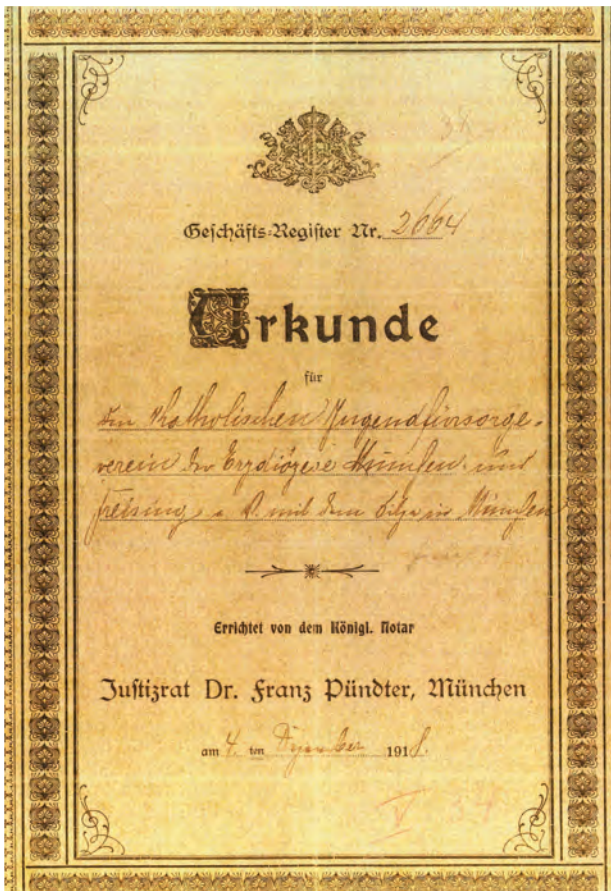 Geschäfts-Register Nr. 2664
Urkunde
für
den Katholischen Jugendfürsorge-
verein der Erzdiözese München und
Freising e. V. mit dem Sitze in München
Errichtet von dem Königl. Notar
Justizrat Dr. Franz Pündter, München
am 4. ten Dezember 1918.
V 34